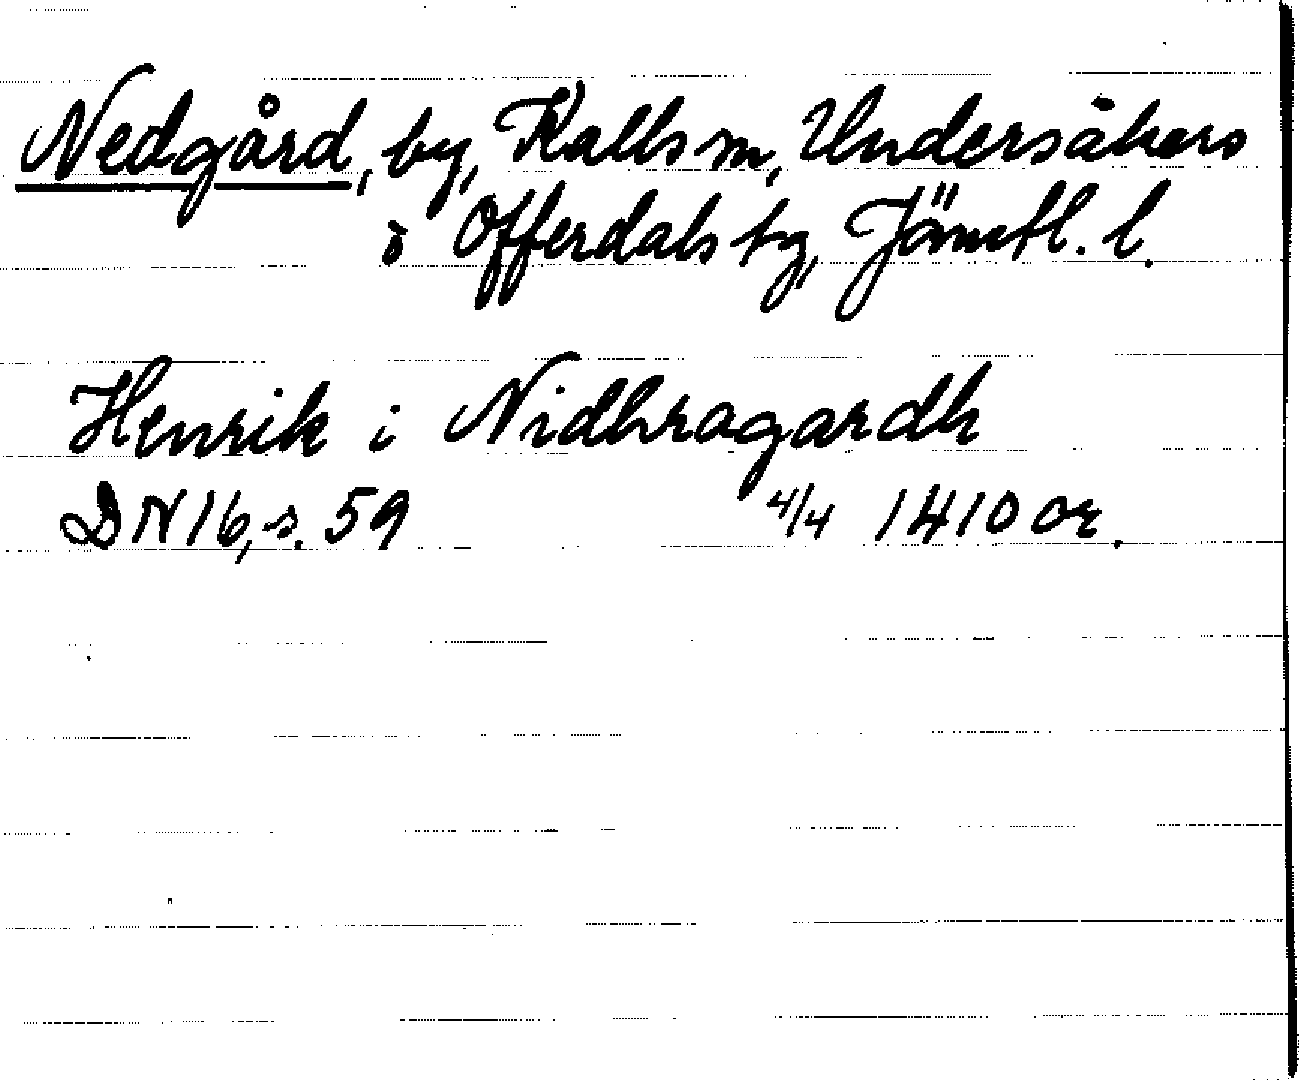 Nedgård, by, Kalls sn, Undersåkers
o Offerdals tg, Jämtl. l.
Henrik i Nidhragardh
DN 16, s. 59 4/4 1410 or.